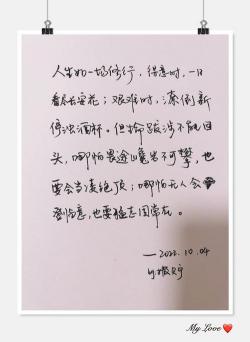 人生如一场修行，得意时，一日
看尽长安花；艰难时，潦倒新
停浊酒杯。但命跋涉不能回
头，哪怕畏途巉岩不可攀，也
要会当凌绝顶；哪怕无人会
意，也要猛志固常在。
—2022.10.04
by
My Love❤️